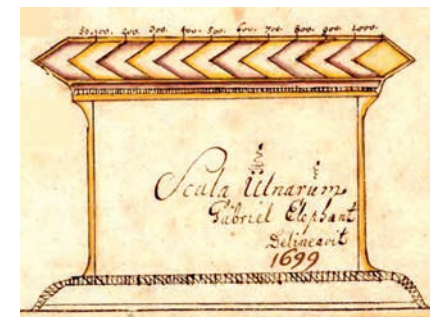 50. 100. 200. 300. 400. 500. 600. 700. 800. 900. 1000.
Scala Ulnarum
Gabriel Elephant
Delineavit
1699